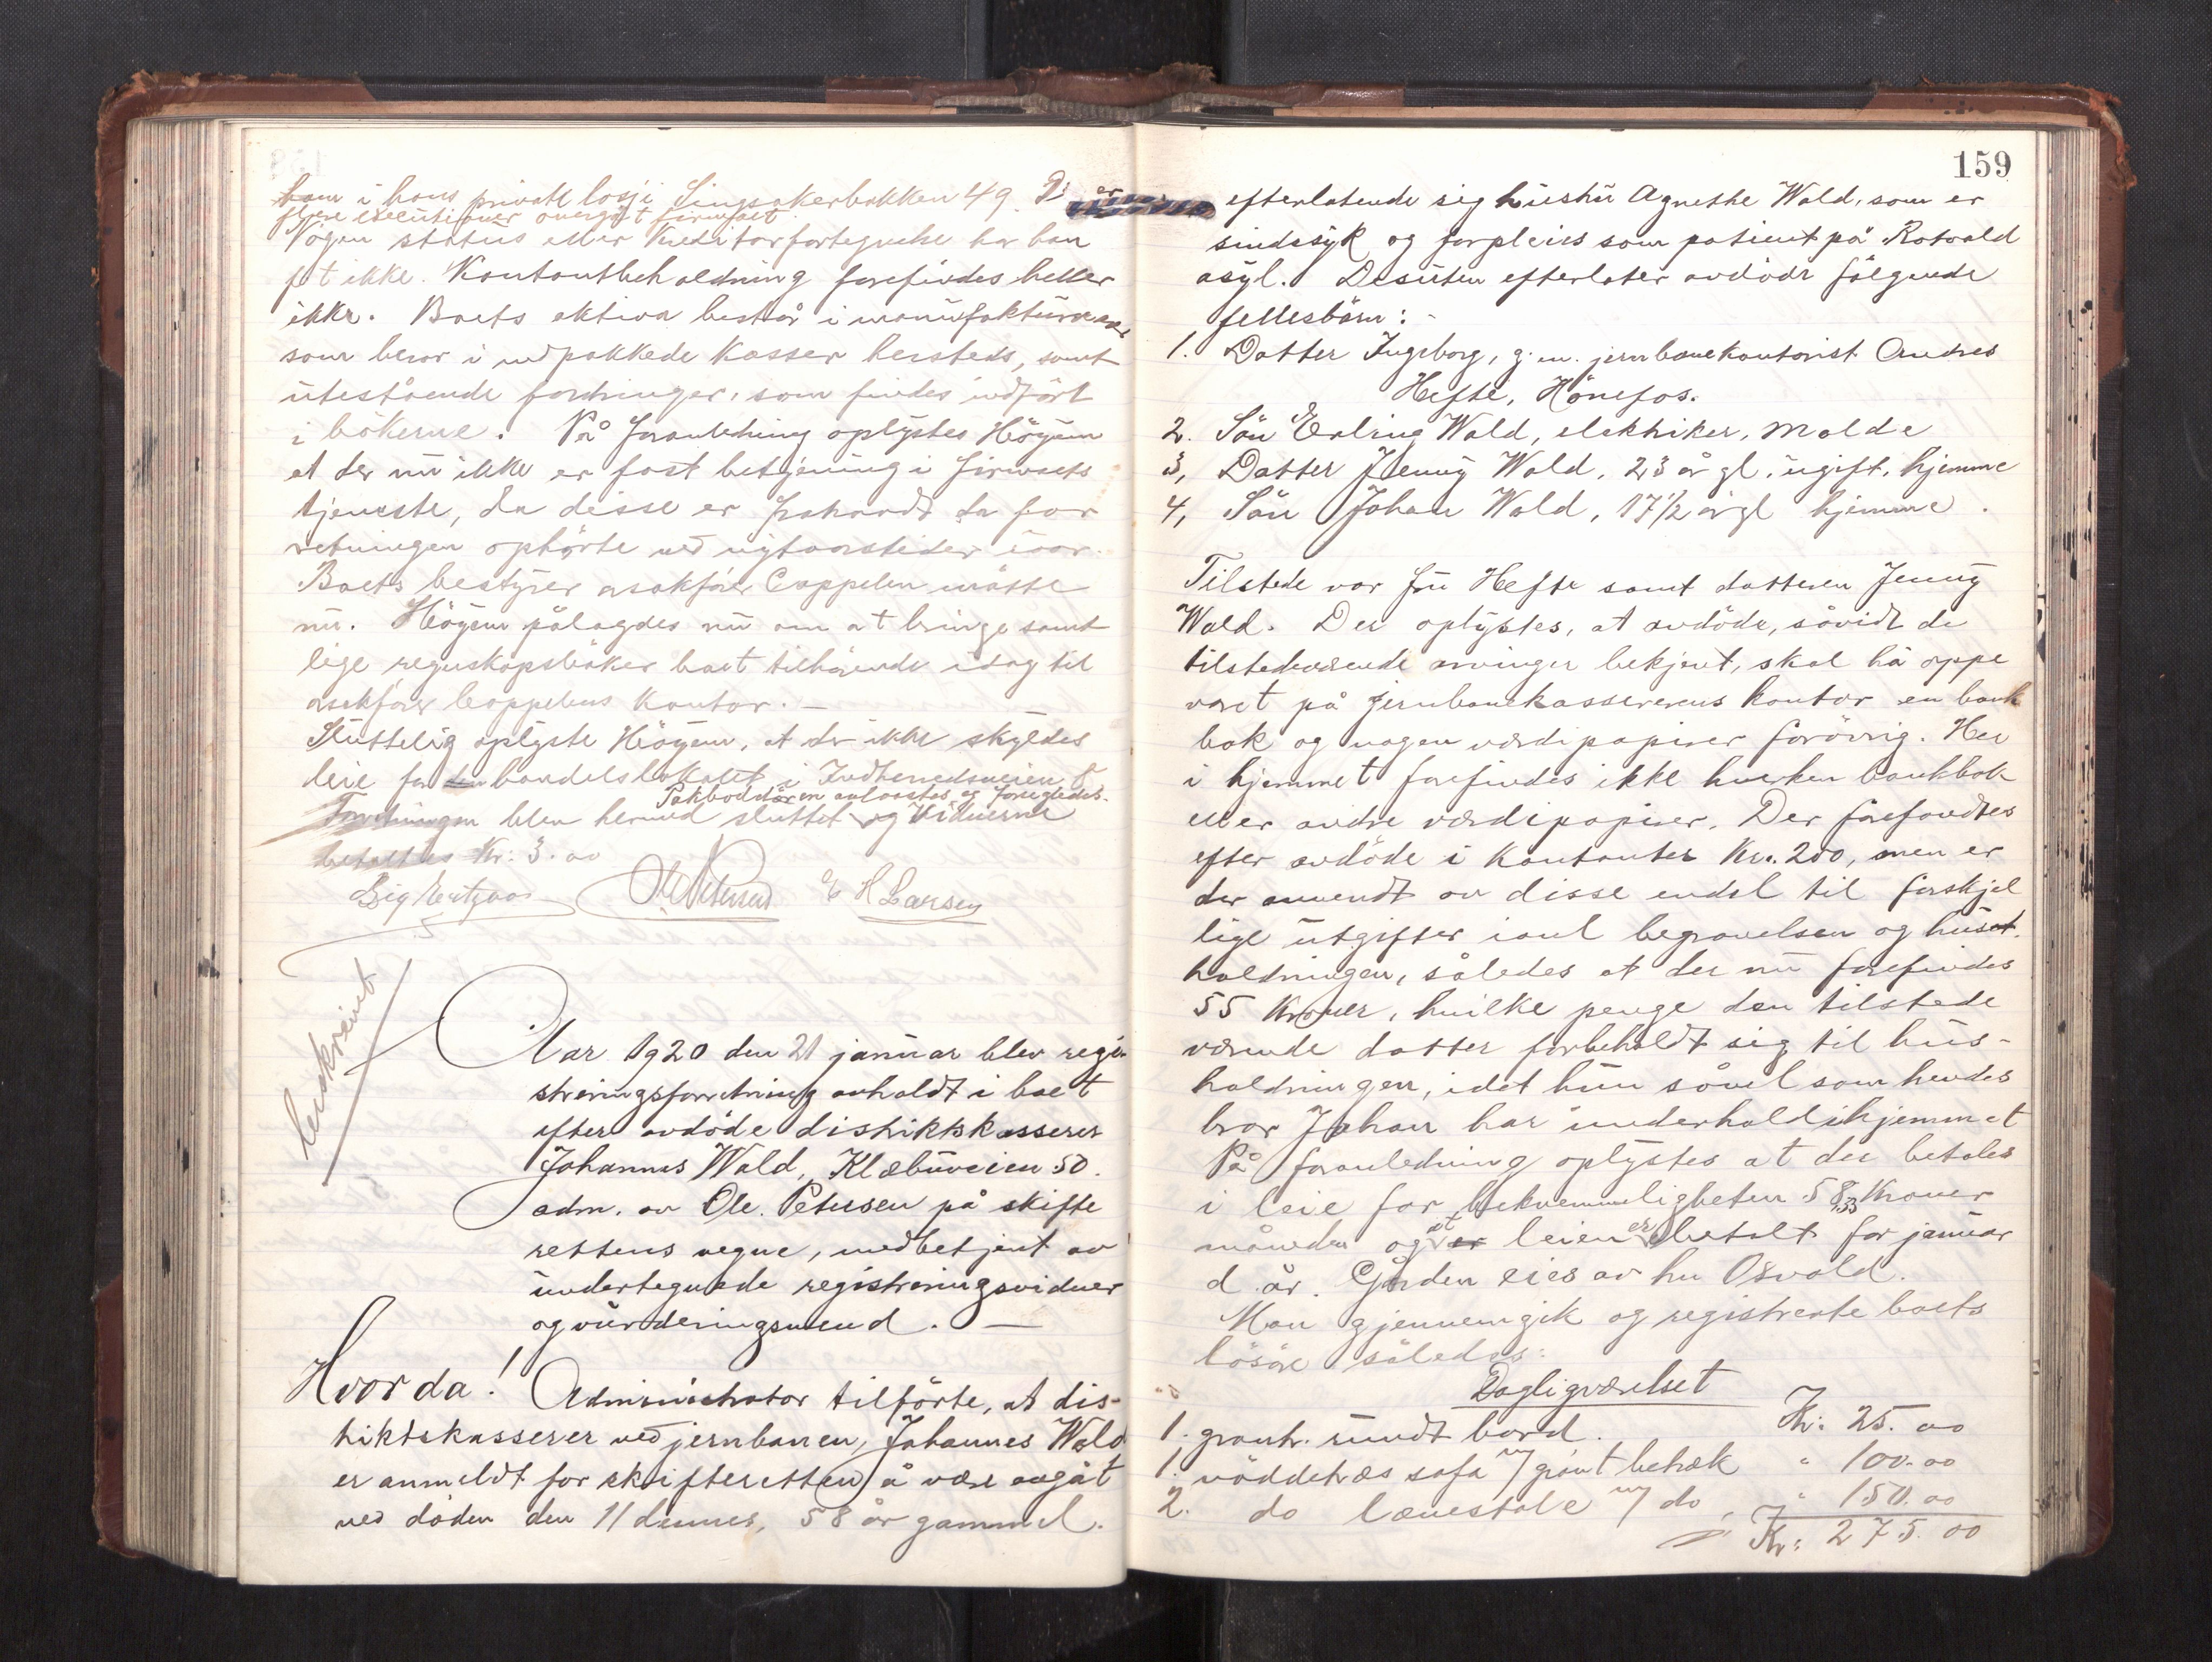 ham i hans privatt losji Singsakerbakken 49. Dr er
flere executioner overgåt firmaet.
Nogen status eller Kreditorfortegnelse har han
pt ikke. Kontantbeholdning forefindes heller
ikke. Boets aktiva består i manufakturvarer
som beror i nedpakkede Kasser hersteds, samt
utestående fordringer, som findes indført
i bökerne. På foranledning oplystes Höyem
at der nu ikke er fast betjening i firmaets
tjeneste, da disse er fratraadt da for
retningen ophørte ved nytaarstider iaar.
Boets bestyrer o.sakfører Cappelen møtte
nu. Höyem pålagdes nu om at bringe samt
lige regnskapsböker boet tilhörende idag til
o.sakfører Cappelens Kontor. —
Sluttelig oplyste Höyem, at der ikke skyldes
leie for handelslokalet i Indherredsveien 8
Pakboddören avlaastes og forsegledes.
Forretningen blev hermed sluttet og Vidnerne
betaltes Kr: 3.00
O Petersen E H Larsen
beskreivet
Aar 1920 den 21 januar blev regi-
streringsforretning avholdt i boet
efter avdöde distriktskasserer
Johannes Wald, Klæbuveien 50.
adm. av Ole Petersen på skifte
rettens vegne, medbetjent av
undertegnede registreringsvidner
og vurderingsmend. —
Hvorda! Administrator tilförte, at dis-
triktskasserer ved jernbanen, Johannes Wald
er anmeldt for skifteretten å være avgåt
ved döden den 11 dennes, 58 år gammel.
159
efterlatende sig hustru Agnethe Wald, som er
sindssyk og forpleies som patient på Rotvold
asyl. Desuten efterlater avdöde fölgende
fellesbörn: -
1. Datter Ingeborg, g.m. jernbanekontorist Andres
Hefte, Hönefos.
2. Sön Erling Wald, elektriker, Molde
3, Datter Jenny Wald, 23 år gl. ugift, hjemme
4, Sön Johan Wald, 17½ år gl hjemme.
Tilstede var fru Hefte samt datteren Jenny
Wald. Der oplystes, at avdöde, såvidt de
tilstedeværende arvinger bekjent, skal ha oppe
varet på jernbanekassererens kontor en bank
bok og nogen værdipapirer forövrig. Her
i hjemmet forefindes ikke hverken bankbok
eller andre værdipapirer. Der forefandtes
efter avdöde i Kontanter Kr. 200, men er
der anvendt av disse endel til forskjel
lige utgifter iaul begravelsen og huset.
holdningen, således at der nu forefindes
55 Kroner, hvilke penge den tilstede
værende datter forbeholdt sig til hus-
holdningen, idet hun såvel som hendes
bror Johan har underhold i hjemmet
På foranledning oplystes at der betales
i leie for bekvemmeligheten 58,33 Kroner
måneden og at er leien er betalt for januar
d. år. Gården eies av hr Osvald.
Man gjennemgik og registrerte boets
lösöre således:
Dagligværelset
1. grantr. rundt bord. Kr: 25.00
1. nöddetræs sofa m/ grönt betræk " 100.00
2. do lænestole m/ do " 150.00
Kr: 275.00